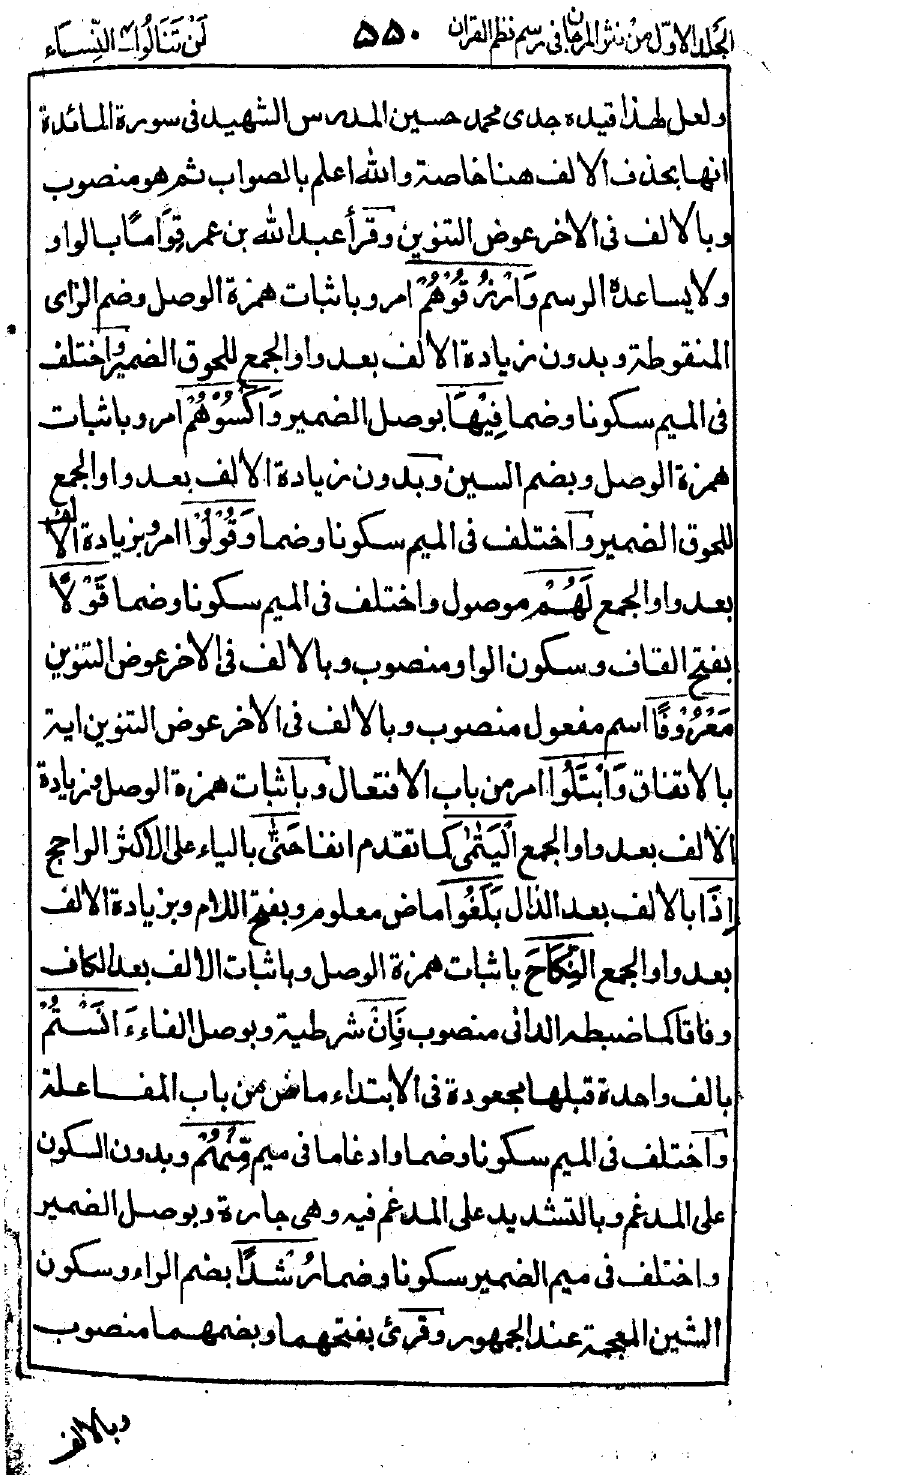 الجلد الاول من نثر المرجان فی رسم نظم القران ٥٥٠ لن تنالوا۴ النساء
ولعل لهذا قيده جدی محمد حسين المدرس الشهيد فی سورة المائدة
انها بحذف الالف هنا خاصة والله اعلم بالصواب ثم هو منصوب
وبالالف فی الاخر عوض التنوين وقرأ عبد الله بن عمر قِوَامًا بالواو
ولا يساعده الرسم وَارْزُقُوْهُمْ امر وباثبات همزة الوصل وضم الزای
المنقوطة وبدون زيادة الالف بعد واو الجمع للحوق الضمير واختلف
فی الميم سكونا وضما فِيْهَا بوصل الضمير وَاكْسُوْهُمْ امر وباثبات
همزة الوصل وبضم السين وبدون زيادة الالف بعد واو الجمع
للحوق الضمير واختلف فی الميم سكونا وضما وَقُوْلُوْا امر وبزيادة الالف
بعد واو الجمع لَهُمْ موصول واختلف فی الميم سكونا وضما قَوْلًا
بفتح القاف وسكون الواو منصوب وبالالف فی الاخر عوض التنوين
مَعْرُوْفًا اسم مفعول منصوب وبالالف فی الاخر عوض التنوين اية
بالاتفاق وَابْتَلُوا امر من باب الافتعال وباثبات همزة الوصل وزيادة
الالف بعد واو الجمع الْيَتٰمٰی كما تقدم انفا حَتّٰی بالياء علی الاكثر الراجح
اِذَا بالالف بعد الذال بَلَغُوا ماض معلوم وبفتح اللام وبزيادة الالف
بعد واو الجمع النِّكَاحَ باثبات همزة الوصل وباثبات الالف بعد الكاف
وفاقا كما ضبطه الدانی منصوب فَاِنْ شرطية وبوصل الفاء ءَانَسْتُمْ
بالف واحدة قبلها مجعودة فی الابتداء ماض من باب المفاعلة
واختلف فی الميم سكونا وضما وادغاما فی ميم مِّنْهُمْ وبدون السكون
علی المدغم وبالتشديد علی المدغم فيه وهی جارة وبوصل الضمير
واختلف فی ميم الضمير سكونا وضما رُشْدًا بضم الراء وسكون
الشين المعجمة عند الجمهور وقرئ بفتحهما وبضمهما منصوب
وبالالف